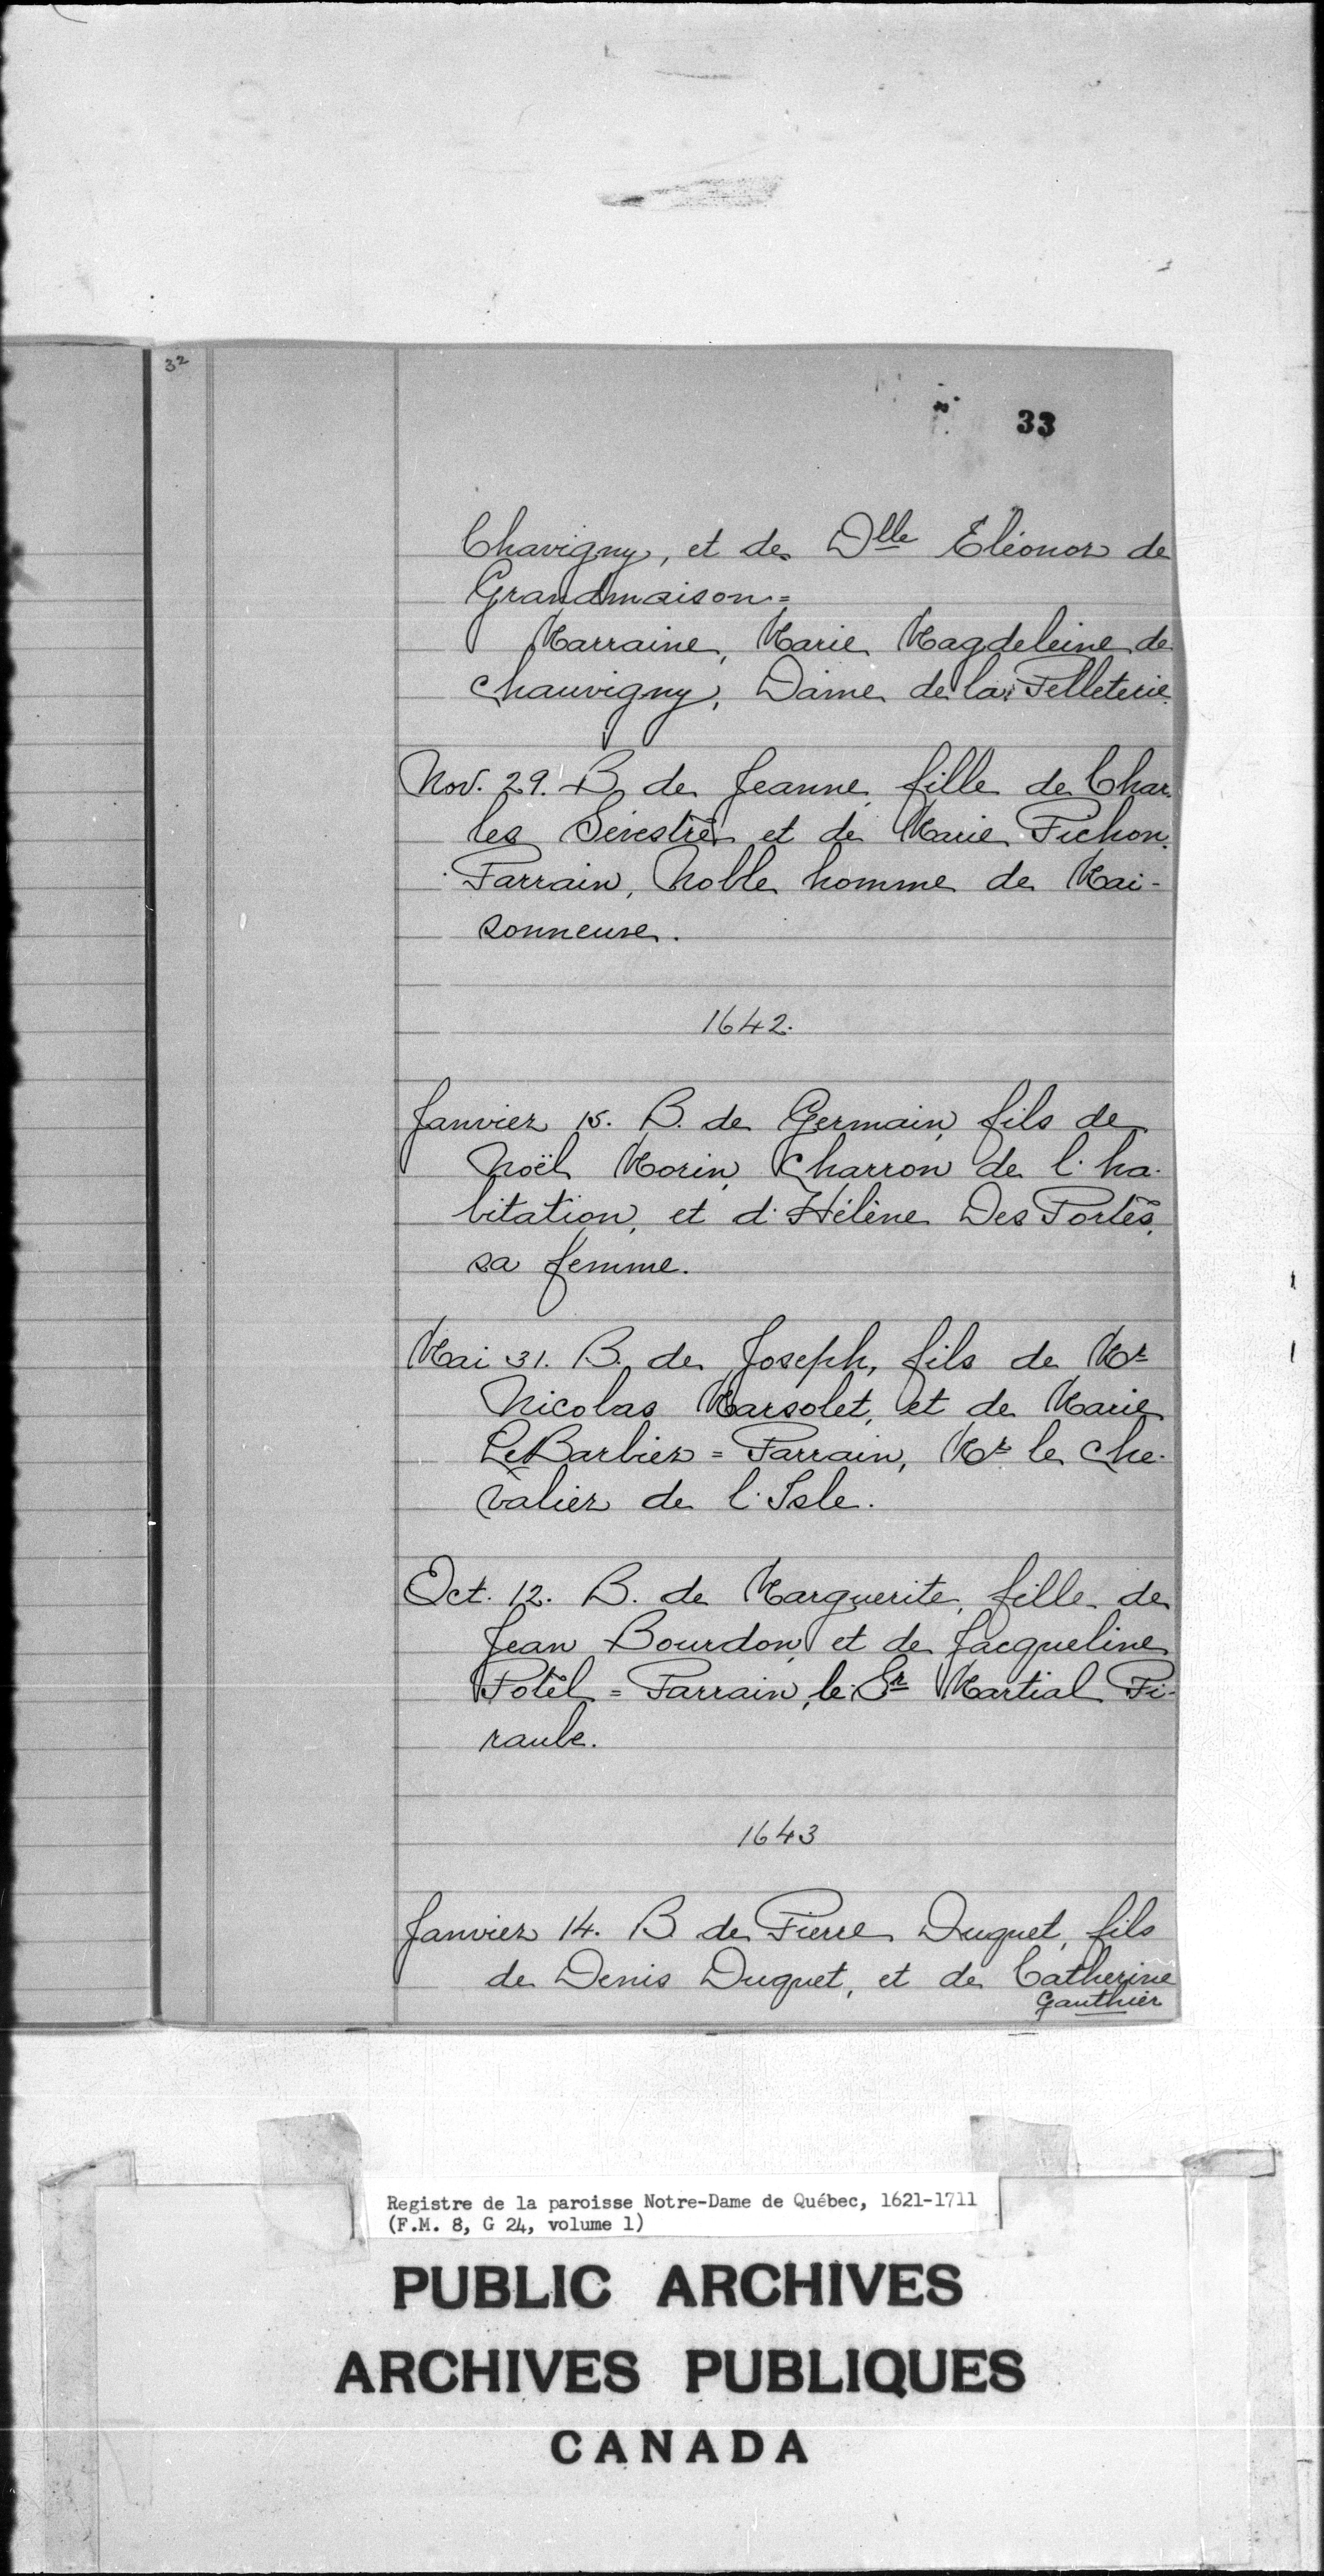 32
33
Chavigny, et de Dlle Eléonor de
Grandmaison =
Marraine, Marie Magdeleine de
Chauvigny, Dame de la Pelleterie.
Nov. 29. B. de Jeanne, fille de Char-
les Sevestre et de Marie Pichon.
Parrain, Noble homme de Mai-
sonneuve.
1642.
Janvier 15. B. de Germain, fils de
Noël Morin, Charron de l'ha-
bitation, et d'Hélène Des Portes,
sa femme.
Mai 31. B. de Joseph, fils de Mr
Nicolas Marsolet, et de Marie
Le Barbier = Parrain, Mr le Che-
valier de l'Isle.
Oct. 12. B. de Marguerite, fille de
Jean Bourdon, et de Jacqueline
Potel = Parrain, le Sr Martial Pi-
raube.
1643
Janvier 14. B de Pierre Duquet, fils
de Denis Duquet, et de Catherine
Gauthier
Registre de la paroisse Notre-Dame de Québec, 1621-1711
(F.M. 8, G 24, volume 1)
PUBLIC ARCHIVES
ARCHIVES PUBLIQUES
CANADA